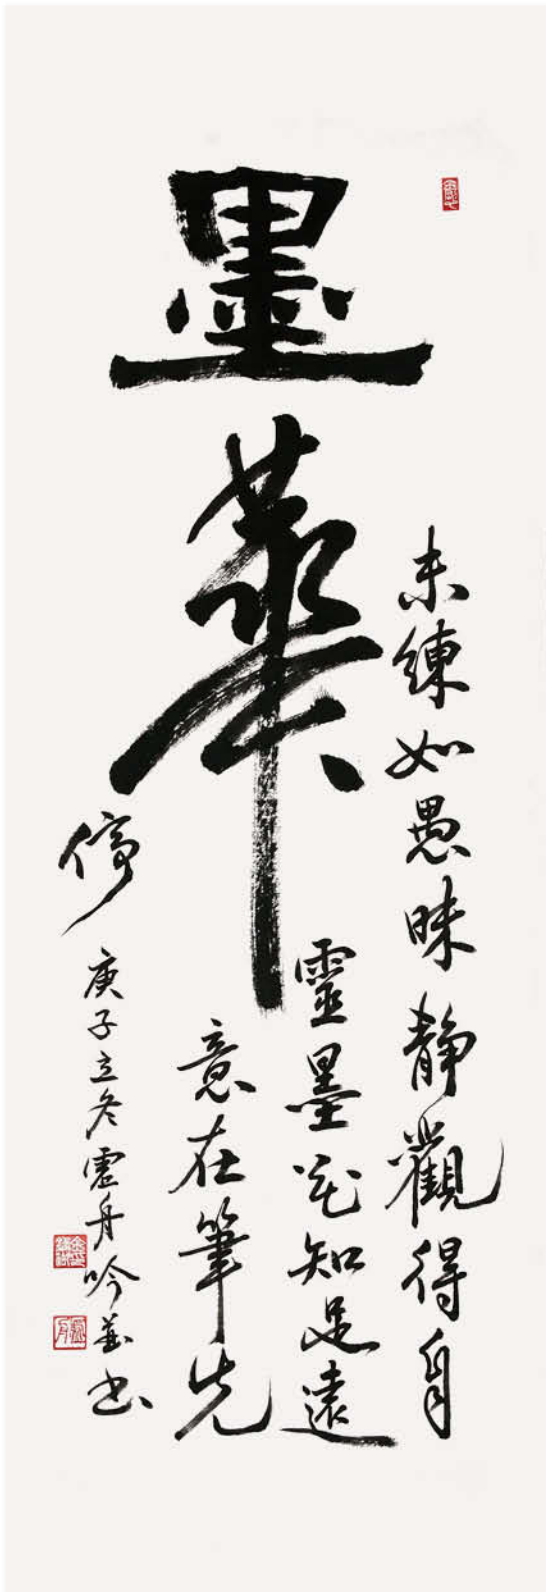 墨華
未練如愚昧静觀得自
靈墨花知足遠
意在筆先
停
庚子立冬虛舟吟并书